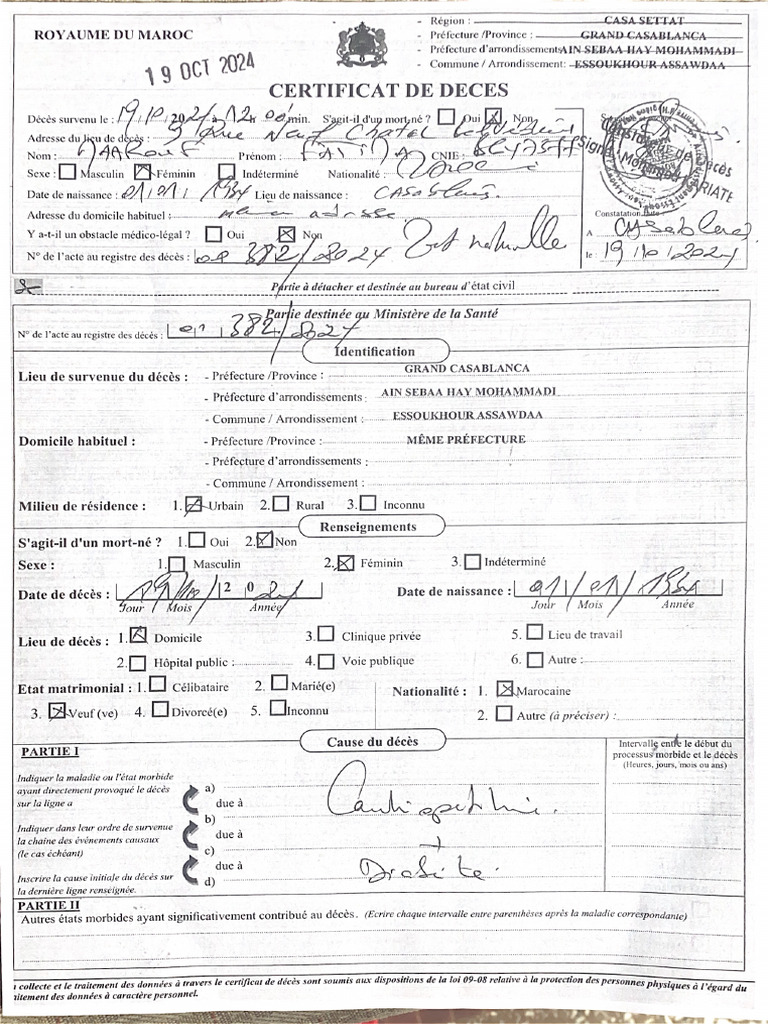 ROYAUME DU MAROC
19 OCT 2024
- Région : CASA SETTAT
- Préfecture /Province : GRAND CASABLANCA
- Préfecture d'arrondissements AIN SEBAA HAY MOHAMMADI
- Commune / Arrondissement: ESSOUKHOUR ASSAWDAA
CERTIFICAT DE DECES
Décès survenu le : 19/10/2024 12 00 min. S'agit-il d'un mort-né ? Oui Non
Adresse du lieu de décès : Rue Neuf Chatel
Nom : MAAROUF Prénom : FATIMA CNIE :
Sexe : Masculin Féminin Indéterminé Nationalité :
Date de naissance : 01/01/1934 Lieu de naissance : CASABLANCA
Adresse du domicile habituel : même adresse
Y a-t-il un obstacle médico-légal ? Oui Non Mort naturelle
N° de l'acte au registre des décès : 382/2024
Constatation de Décès
Constatation
A Casablanca
le : 19/10/2024
Partie à détacher et destinée au bureau d'état civil
Partie destinée au Ministère de la Santé
N° de l'acte au registre des décès : 382/2024
Identification
Lieu de survenue du décès : - Préfecture /Province : GRAND CASABLANCA
- Préfecture d'arrondissements : AIN SEBAA HAY MOHAMMADI
- Commune / Arrondissement : ESSOUKHOUR ASSAWDAA
Domicile habituel : - Préfecture /Province : MÊME PRÉFECTURE
- Préfecture d'arrondissements :
- Commune / Arrondissement :
Milieu de résidence : 1. Urbain 2. Rural 3. Inconnu
Renseignements
S'agit-il d'un mort-né ? 1. Oui 2. Non
Sexe : 1. Masculin 2. Féminin 3. Indéterminé
Date de décès : 19/10/2024 Date de naissance : 01/01/1934
Jour Mois Année Jour Mois Année
Lieu de décès : 1. Domicile 3. Clinique privée 5. Lieu de travail
2. Hôpital public : 4. Voie publique 6. Autre :
Etat matrimonial : 1. Célibataire 2. Marié(e) Nationalité : 1. Marocaine
3. Veuf (ve) 4. Divorcé(e) 5. Inconnu 2. Autre (à préciser) :
Cause du décès
PARTIE I
Intervalle entre le début du
processus morbide et le décès
(Heures, jours, mois ou ans)
Indiquer la maladie ou l'état morbide
ayant directement provoqué le décès
sur la ligne a
a)
due à
b)
Indiquer dans leur ordre de survenue
la chaine des évènements causaux
(le cas échéant)
due à
c)
+
due à
Inscrire la cause initiale du décès sur
la dernière ligne renseignée.
d)
PARTIE II
Autres états morbides ayant significativement contribué au décès. (Ecrire chaque intervalle entre parenthèses après la maladie correspondante)
collecte et le traitement des données à travers le certificat de décès sont soumis aux dispositions de la loi 09-08 relative à la protection des personnes physiques à l'égard du
itement des données à caractère personnel.